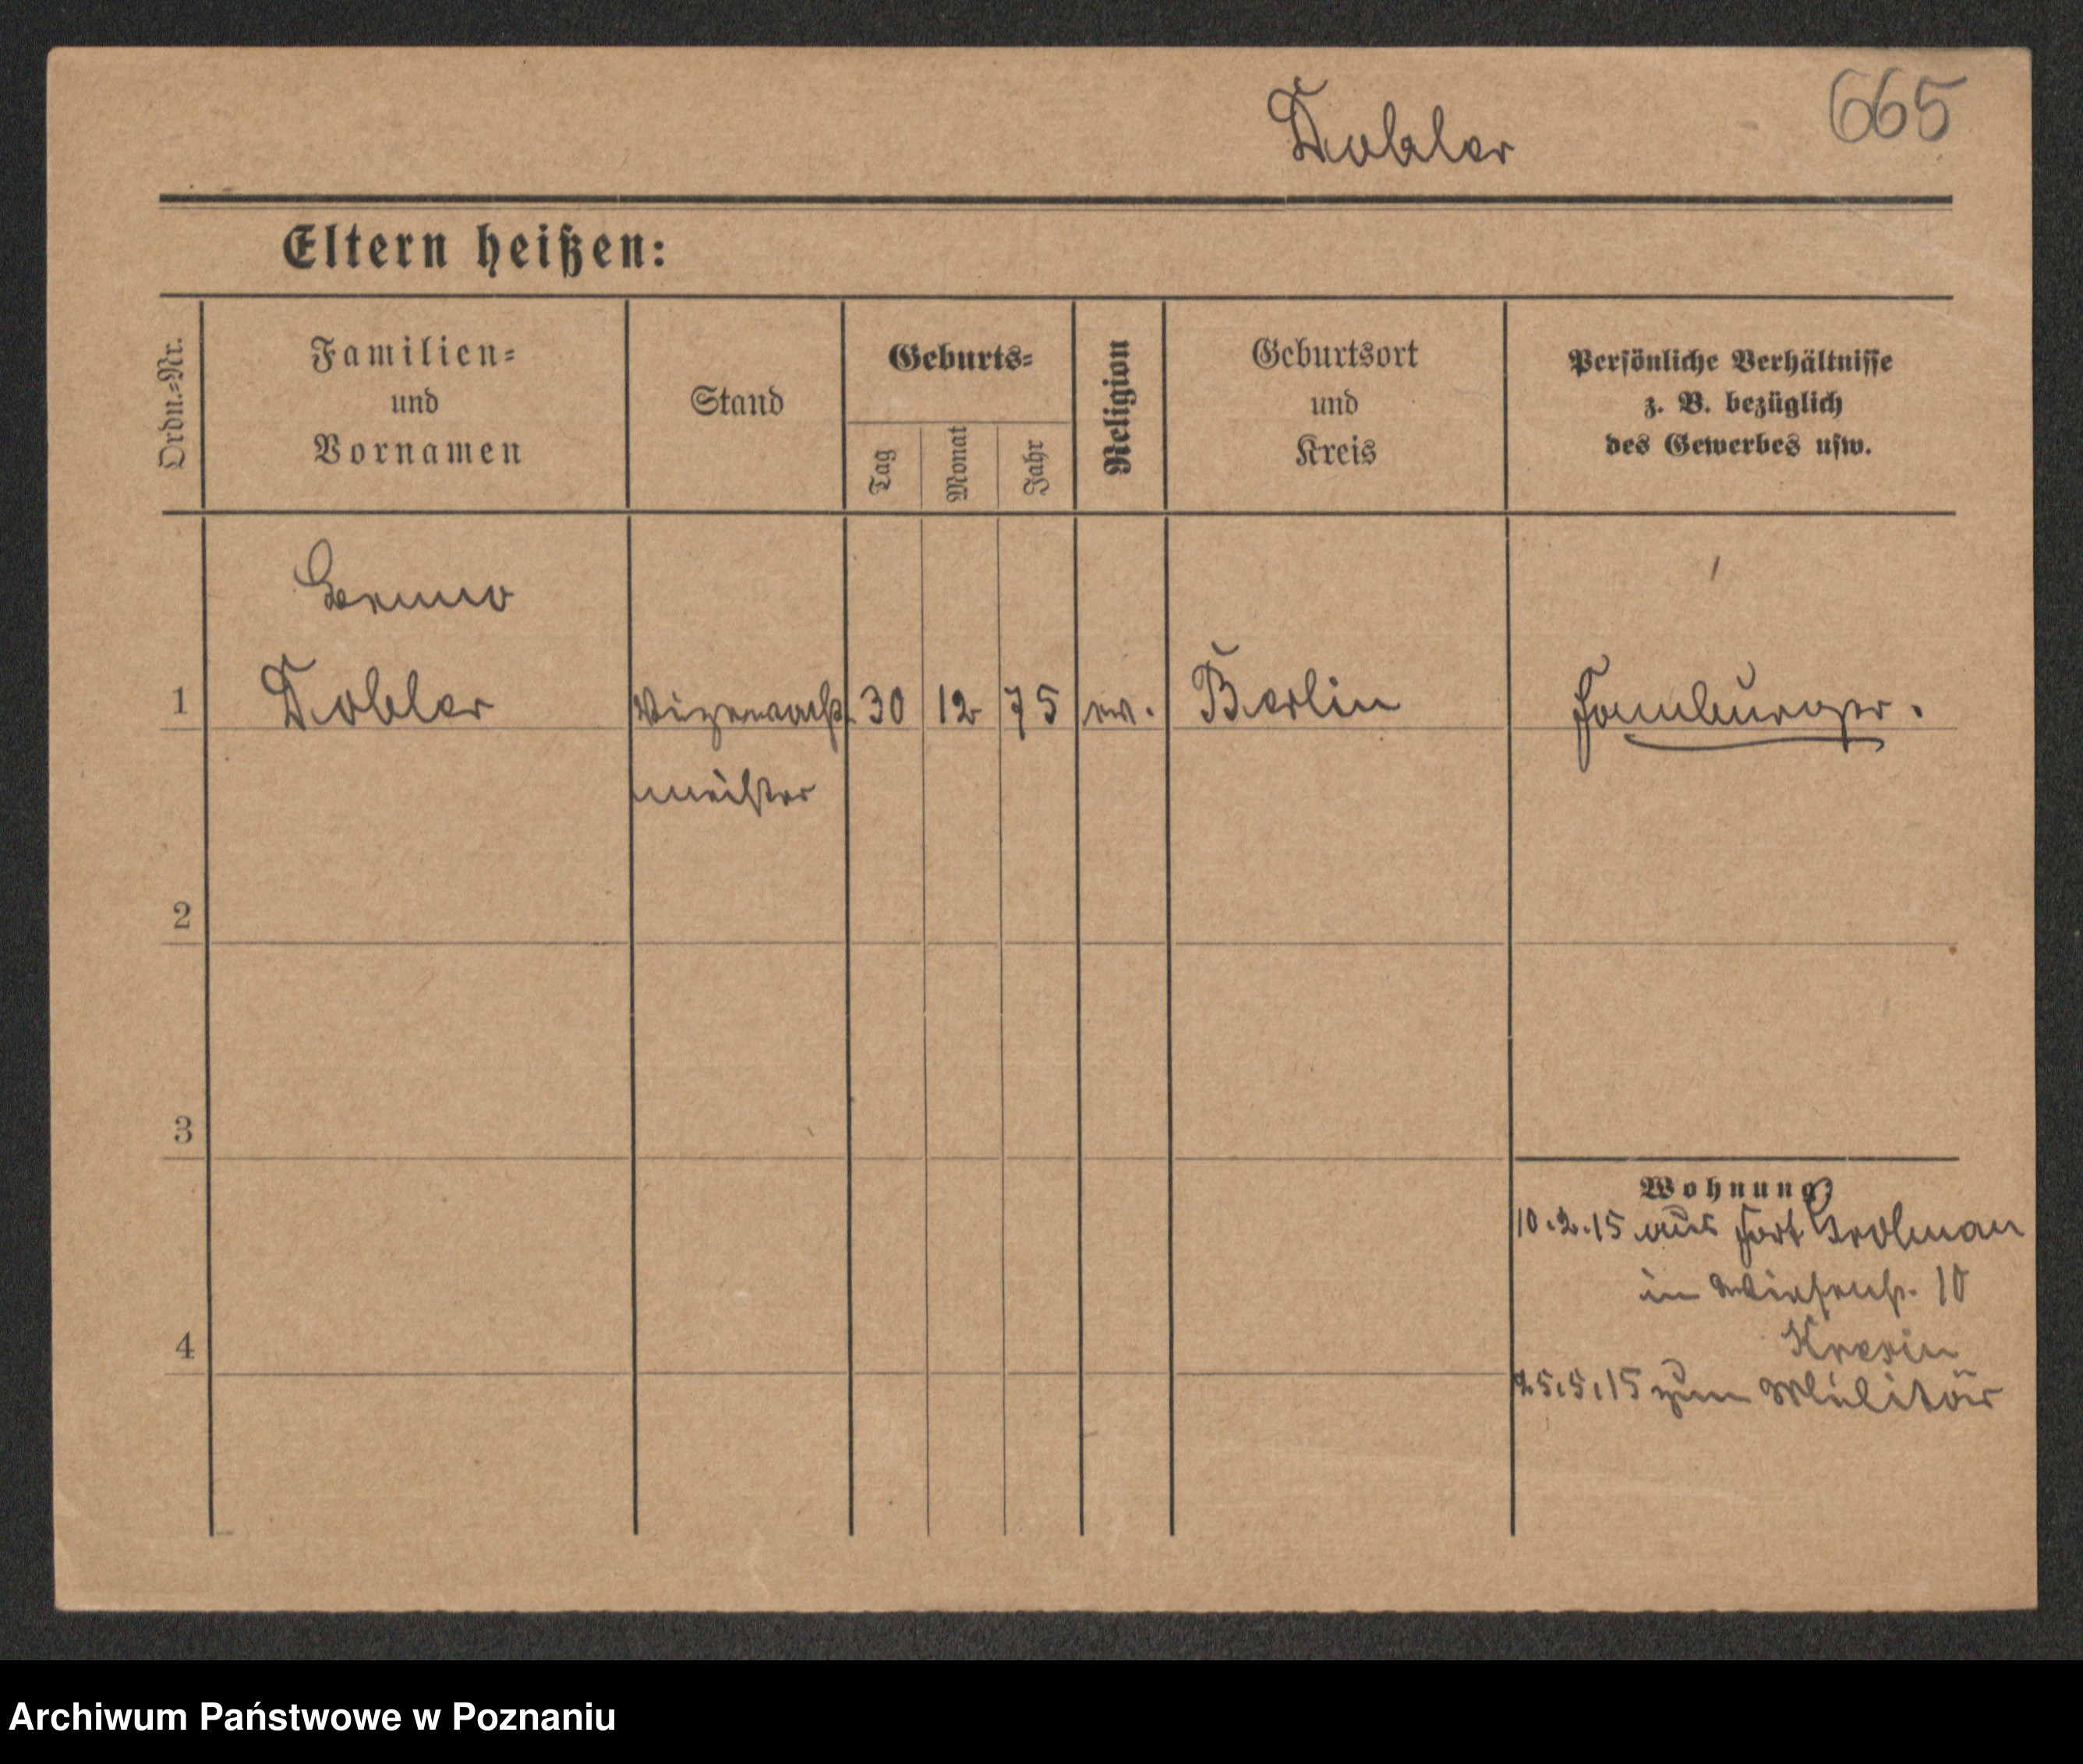 Dobler
665
Eltern heißen:
Ordn.=Nr.
Familien=
und
Vornamen
Stand
Geburts=
Tag
Monat
Jahr
Religion
Geburtsort
und
Kreis
Persönliche Verhältnisse
z. B. bezüglich
des Gewerbes usw.
1
Dobler
Vizewacht
meister
30
12
75
ev.
Berlin
Hamburger.
2
3
4
Wohnung:
10.2.15 aus Fort Grolman
in 10
25.5.15 zum Militär
Archiwum Państwowe w Poznaniu